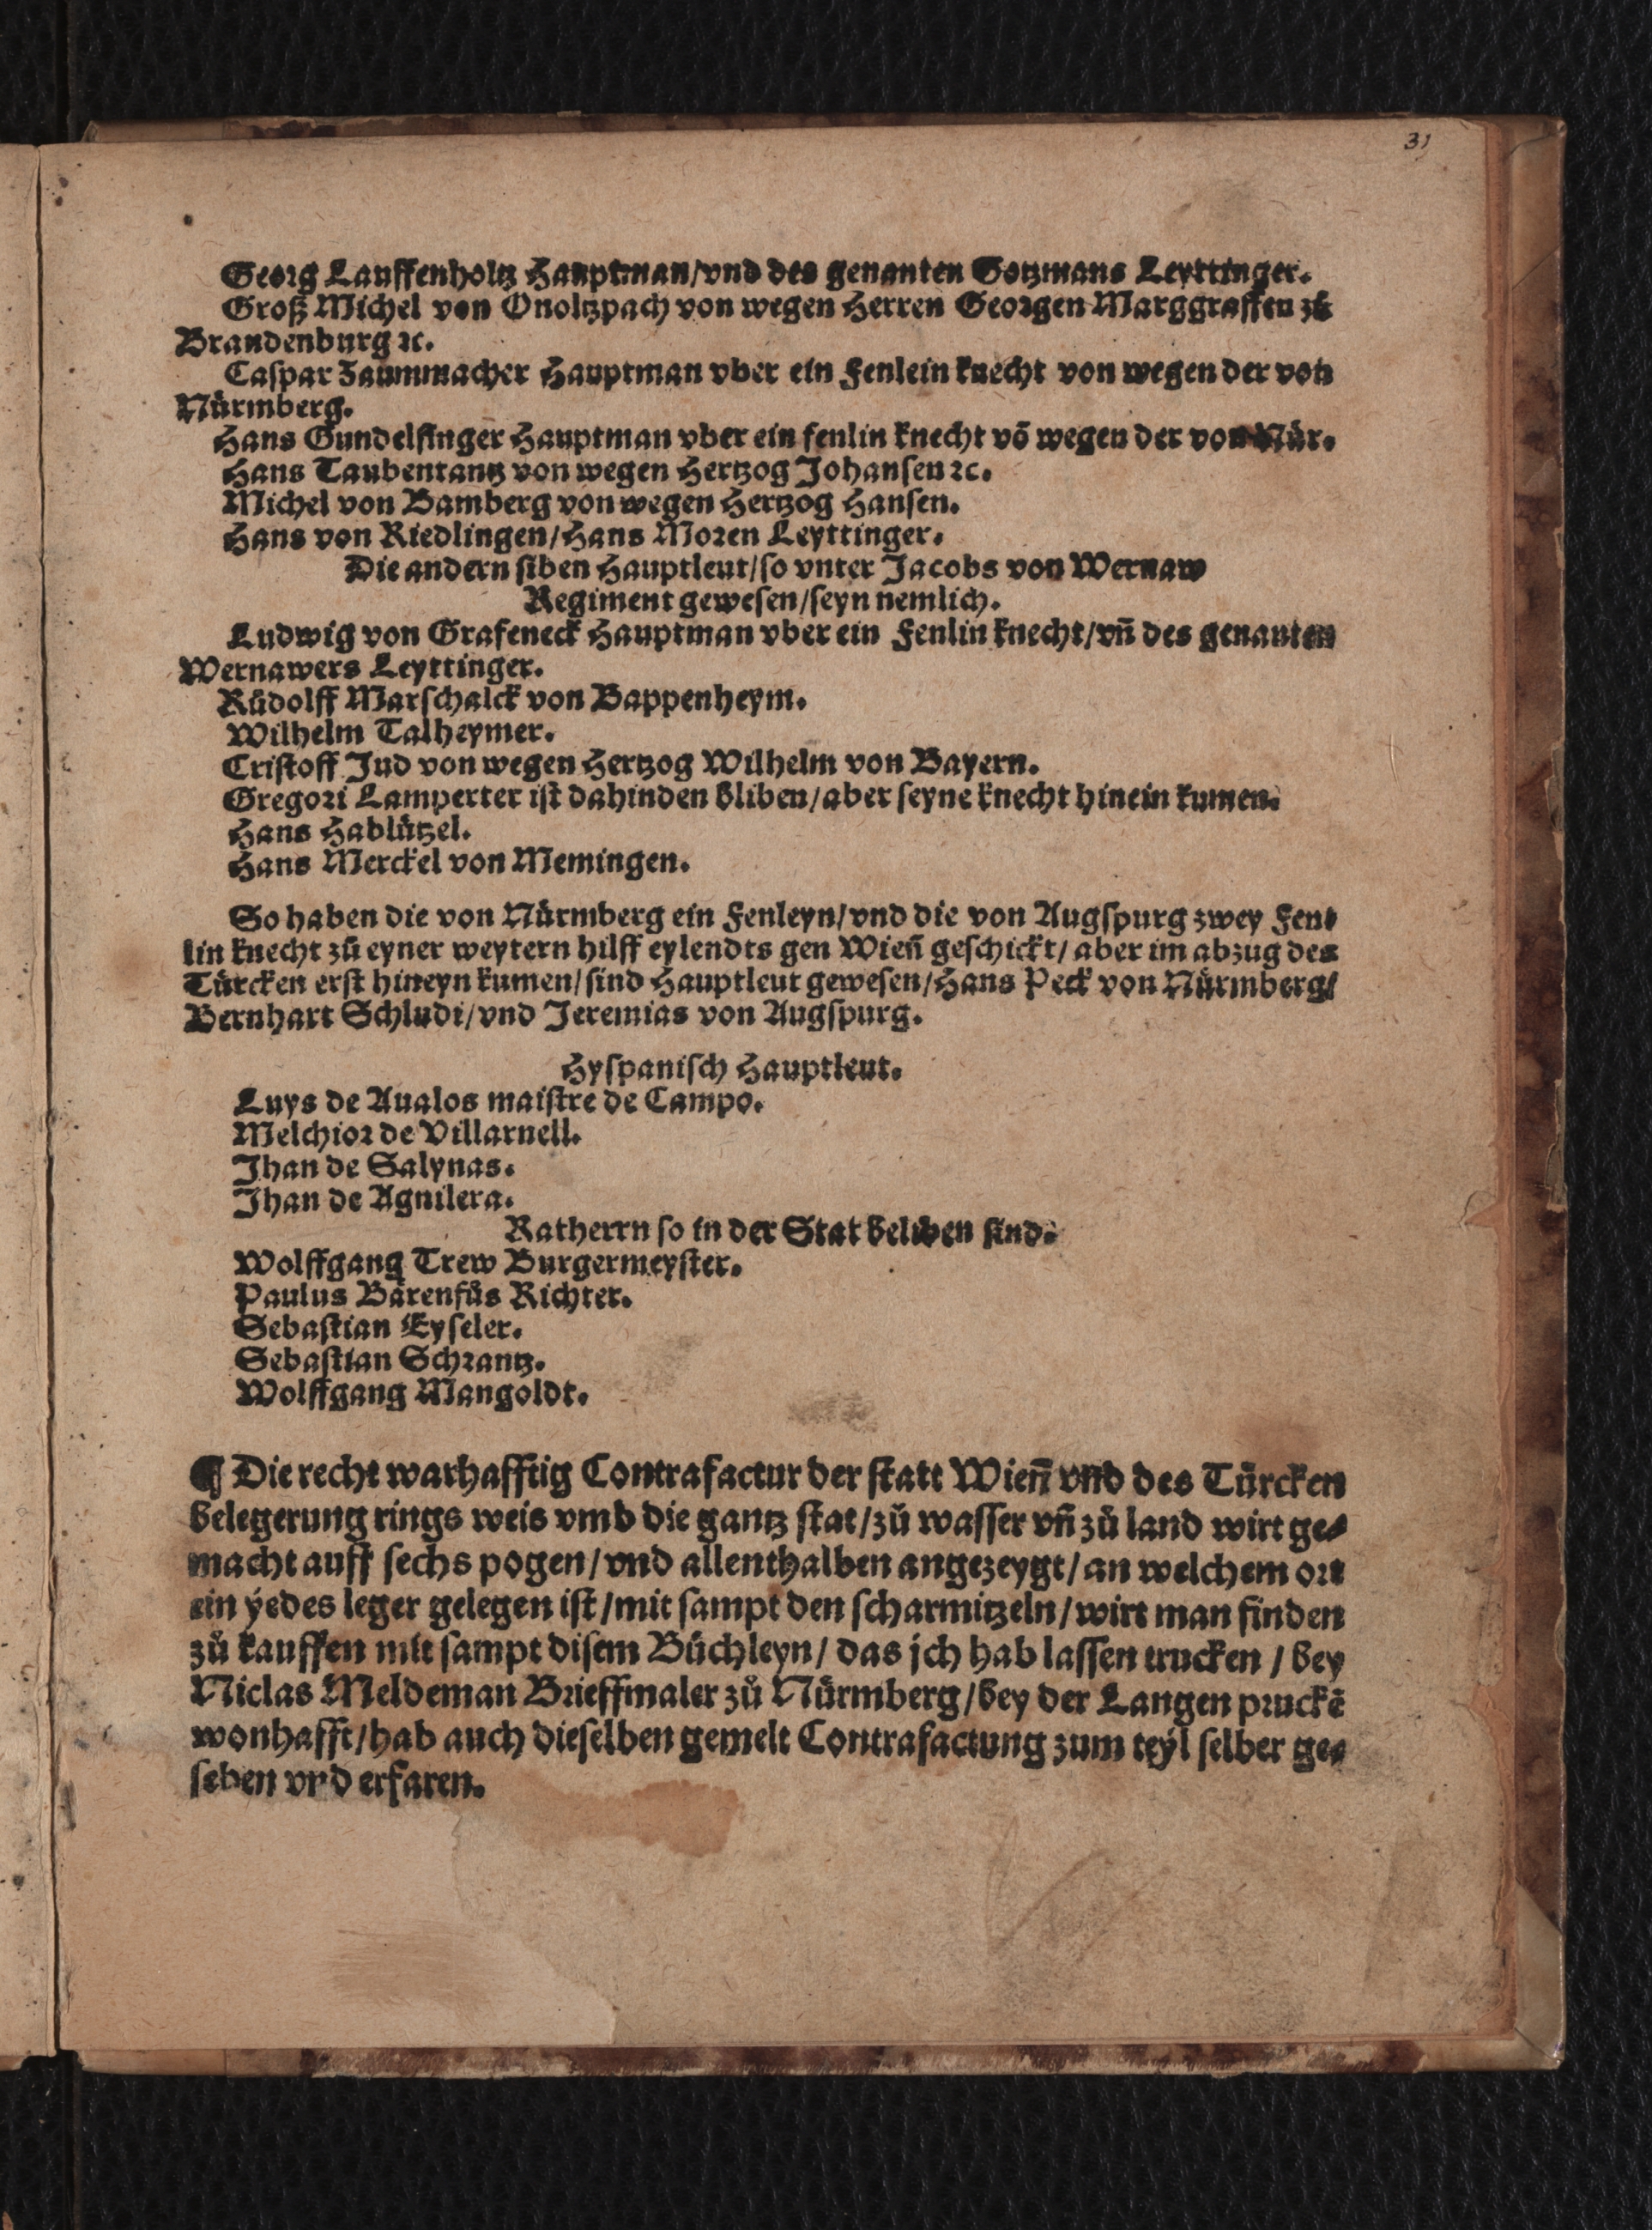 31
Georg Lauffenholtz Hauptman/vnd des genanten Gotzmans Leyttinger.
Groß Michel von Onoltzpach von wegen Herren Georgen Marggraffen zů
Brandenburg ꝛc.
Caſpar Zaummacher Hauptman vber ein Fenlein knecht von wegen der von
Nürmberg.
Hans Gundelfinger Hauptman vber ein fenlin knecht võ wegen der von Nür.
Hans Taubentantz von wegen Hertzog Johanſen ꝛc.
Michel von Bamberg von wegen Hertzog Hanſen.
Hans von Riedlingen/Hans Moren Leyttinger.
Die andern ſiben Hauptleut/ſo vnter Jacobs von Wernaw
Regiment geweſen/ſeyn nemlich.
Ludwig von Grafeneck Hauptman vber ein Fenlin knecht/vñ des genanten
Wernawers Leyttinger.
Růdolff Marſchalck von Bappenheym.
Wilhelm Talheymer.
Criſtoff Jud von wegen Hertzog Wilhelm von Bayern.
Gregori Lamperter iſt dahinden bliben/aber ſeyne knecht hinein kumen.
Hans Hablützel.
Hans Merckel von Memingen.
So haben die von Nürmberg ein Fenleyn/vnd die von Augſpurg zwey Fen⸗
lin knecht zů eyner weytern hilff eylendts gen Wieñ geſchickt/aber im abzug des
Türcken erſt hineyn kumen/ſind Hauptleut geweſen/Hans Peck von Nürmberg/
Bernhart Schludi/vnd Jeremias von Augſpurg.
Hyſpaniſch Hauptleut.
Luys de Aualos maiſtre de Campo.
Melchior de Villarnell.
Jhan de Salynas.
Jhan de Agnilera.
Ratherrn ſo in der Stat beliben ſind.
Wolffgang Trew Burgermeyſter.
Paulus Bärenfůs Richter.
Sebaſtian Eyſeler.
Sebaſtian Schrantz.
Wolffgang Mangoldt.
¶ Die recht warhafftig Contrafactur der ſtatt Wieñ vnd des Türcken
belegerung rings weis vmb die gantz ſtat/zů waſſer vñ zů land wirt ge⸗
macht auff ſechs pogen/vnd allenthalben angezeygt/an welchem ort
ein ÿedes leger gelegen iſt/mit ſampt den ſcharmitzeln/wirt man finden
zů kauffen mit ſampt diſem Büchleyn/das jch hab laſſen trucken/bey
Niclas Meldeman Brieffmaler zů Nürmberg/bey der Langen pruckẽ
wonhafft/hab auch dieſelben gemelt Contrafactung zum teÿl ſelber ge⸗
ſehen vnd erfaren.